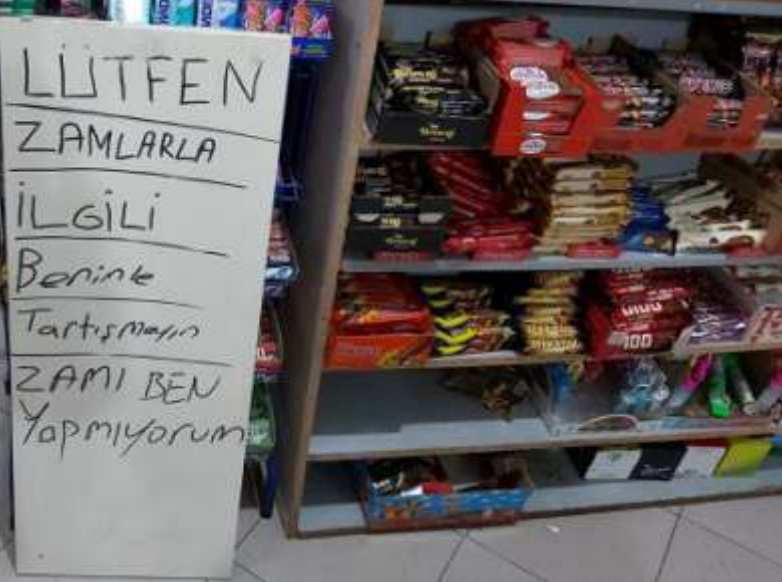 LÜTFEN
ZAMLARLA
İLGİLİ
Benimle
Tartışmayın
ZAMI BEN
Yapmıyorum